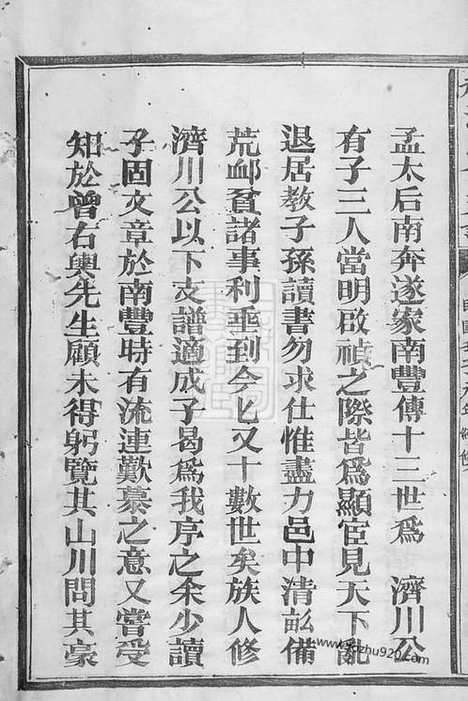 孟太后南奔遂家南豐傳十三世爲　濟川公
有子三人當明啟禎之際皆爲顯宦見天下亂
退居教子孫讀書勿求仕惟盡力邑中清畝備
荒卹貧諸事利垂到今匕又十數世矣族人修
濟川公以下支譜適成子曷爲我序之余少讀
子固文章於南豐時有流連歎慕之意又嘗受
知於曾右輿先生顧未得躬覽其山川問其豪
www.kazhu920.com